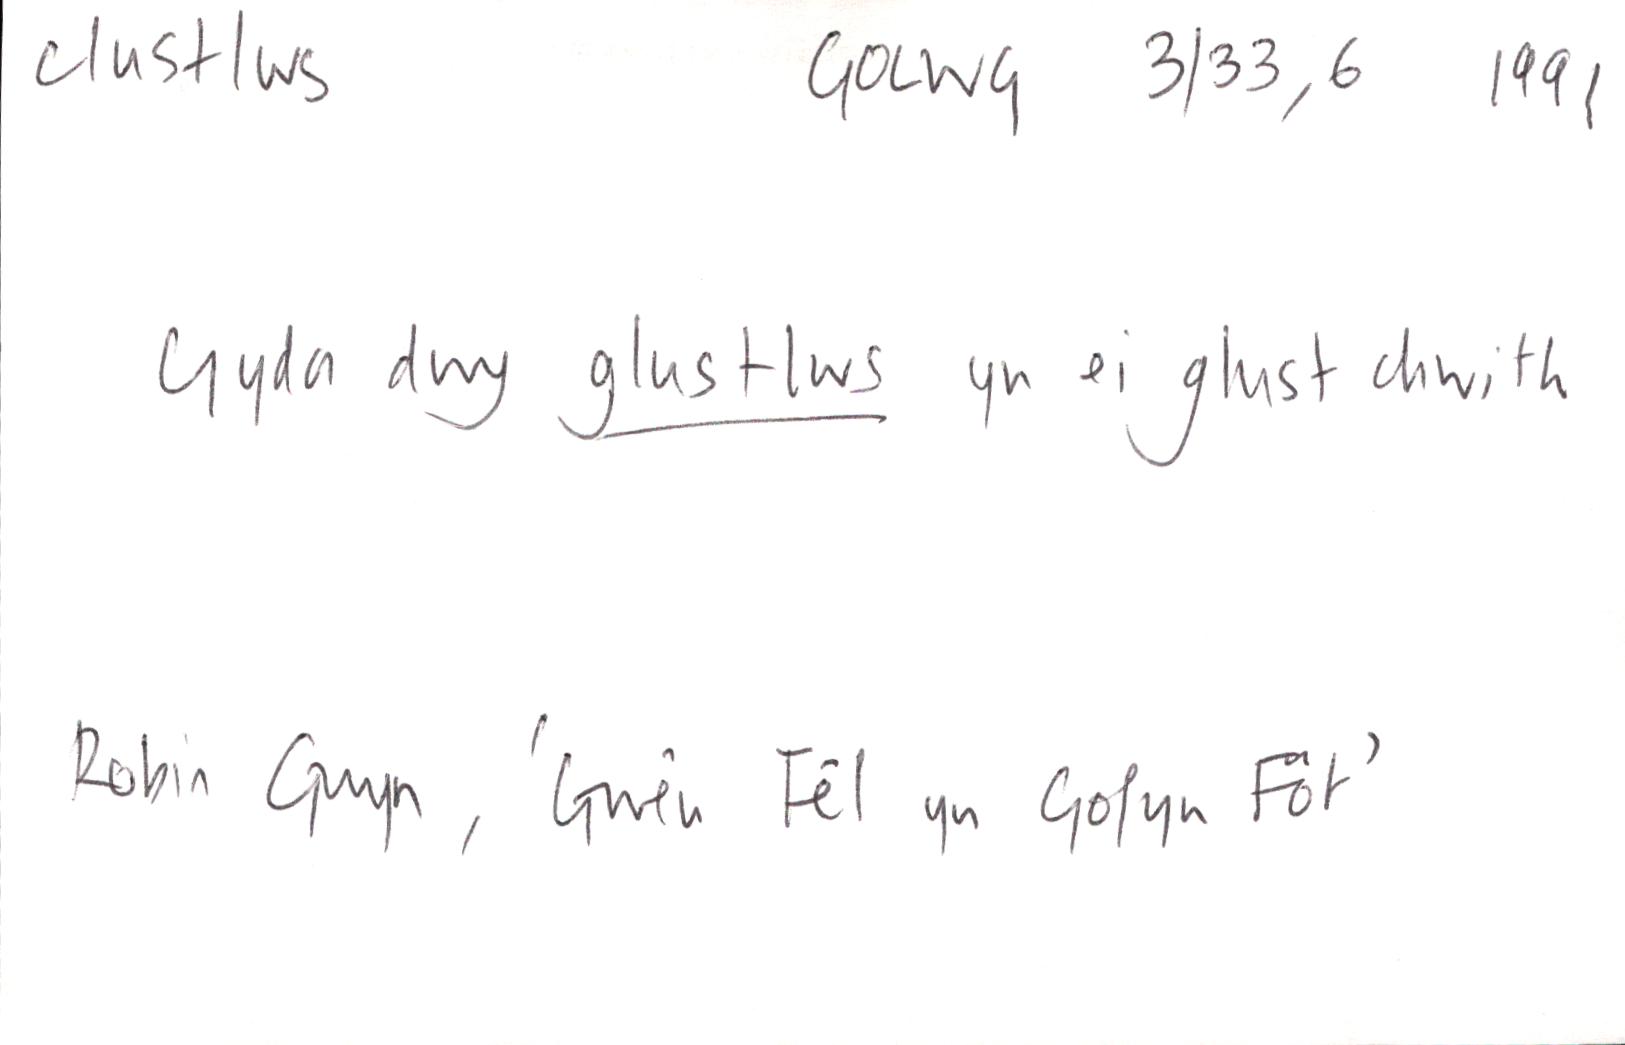 clustlws GOLWG 3/33, 6 1991
Gyda dwy glustlws yn ei glust chwith
Robin Gwyn, 'Gwên Fêl yn Gofyn Fôt'